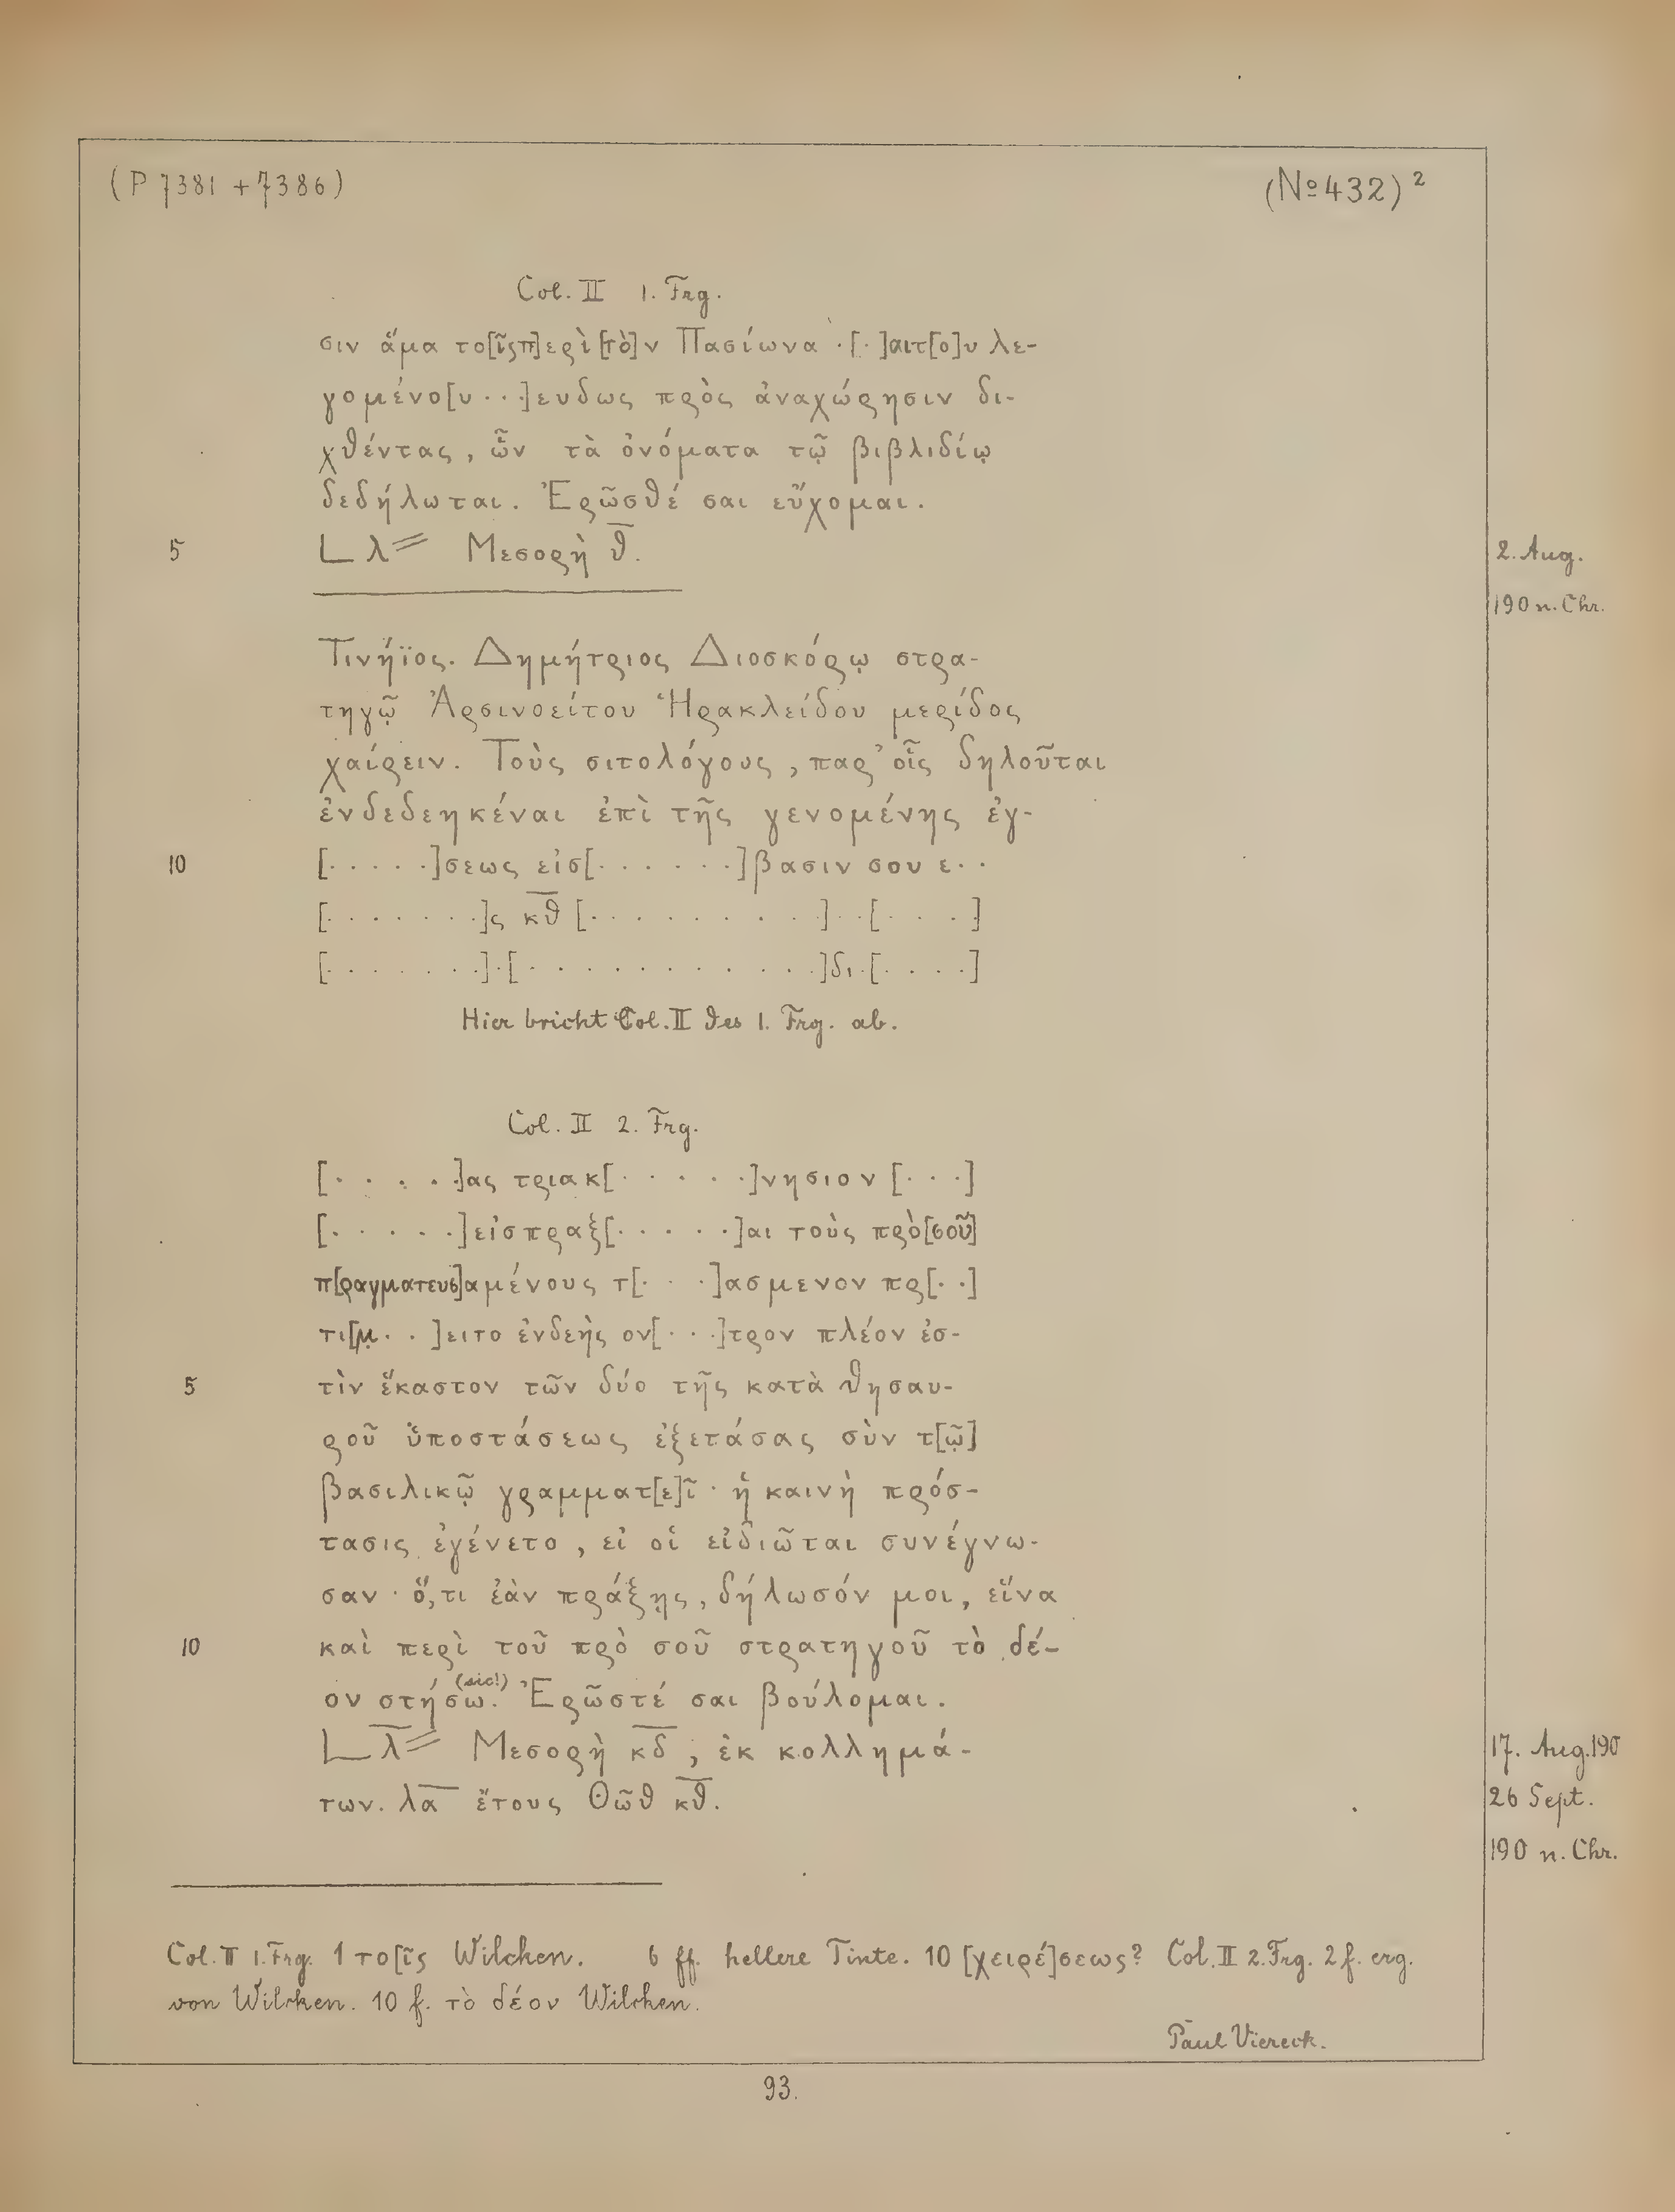 (P 7381 + 7386)
(No 432)²
Col. II 1. Frg.
σιν ἅμα το[ῖς π]ερὶ [τὸ]ν Πασίωνα ·[·]αιτ[ο]υ λε-
γομένο[υ · · ·]ευδως πρὸς ἀναχώρησιν δι-
χθέντας, ὧν τὰ ὀνόματα τῷ βιβλιδίῳ
δεδήλωται. Ἐρῶσθέ σαι εὔχομαι.
5 L λ= Μεσορὴ θ̅. 2. Aug.
190 n. Chr.
Τινήϊος. Δημήτριος Διοσκόρῳ στρα-
τηγῷ Ἀρσινοείτου Ἡρακλείδου μερίδος
χαίρειν. Τοὺς σιτολόγους, παρ' οἷς δηλοῦται
ἐνδεδεηκέναι ἐπὶ τῆς γενομένης ἐγ-
10 [· · · · ·]σεως εἰσ[· · · · · ·]βασιν σου ε · ·
[· · · · · · ·]ς κ̅θ̅ [· · · · · · · · ·] · · [· · · ·]
[· · · · · · ·] · [· · · · · · · · · · ·]δι · [· · · ·]
Hier bricht Col. II des 1. Frg. ab.
Col. II 2. Frg.
[· · · · ·]ας τριακ[· · · · ·]νησιον [· · ·]
[· · · · ·]εἰσπραξ[· · · · ·]αι τοὺς πρὸ [σοῦ]
π[ραγματευσ]αμένους τ[· · ·]ασμενον πρ[· ·]
τι[μ̣ · ·]ειτο ἐνδεὴς ον[· · ·]τρον πλέον ἐσ-
5 τὶν ἕκαστον τῶν δύο τῆς κατὰ θησαυ-
ροῦ ὑ̈ποστάσεως ἐξετάσας σὺν τ[ῷ]
βασιλικῷ γραμματ[ε]ῖ · ἡ καινὴ πρόσ-
τασις ἐγένετο, εἰ οἱ εἰδιῶται συνέγνω-
σαν · ὅ,τι ἐὰν πράξῃς, δήλωσόν μοι, εἵνα
10 καὶ περὶ τοῦ πρὸ σοῦ στρατηγοῦ τὸ δέ-
ον στήσω. (sic!) Ἐρῶστέ σαι βούλομαι.
L λ̅= Μεσορὴ κ̅δ̅, ἐκ κολλημά- 17. Aug. 190
των. λα̅ ἔτους Θῶθ κ̅θ̅. 26 Sept.
190 n. Chr.
Col. II 1. Frg. 1 το[ῖς Wilcken. 6 ff. hellere Tinte. 10 [χειρέ]σεως? Col. II 2. Frg. 2 f. erg.
von Wilcken. 10 f. τὸ δέον Wilcken.
Paul Viereck.
93.